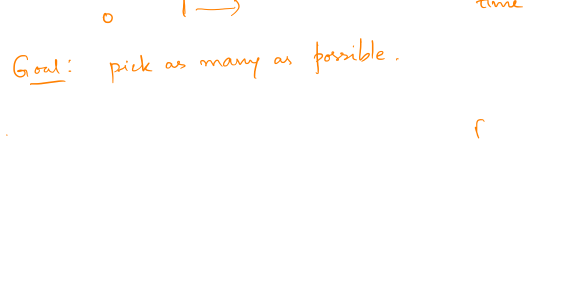 0 time
Goal: pick as many as possible.